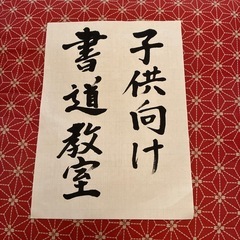 子供向け
書道教室